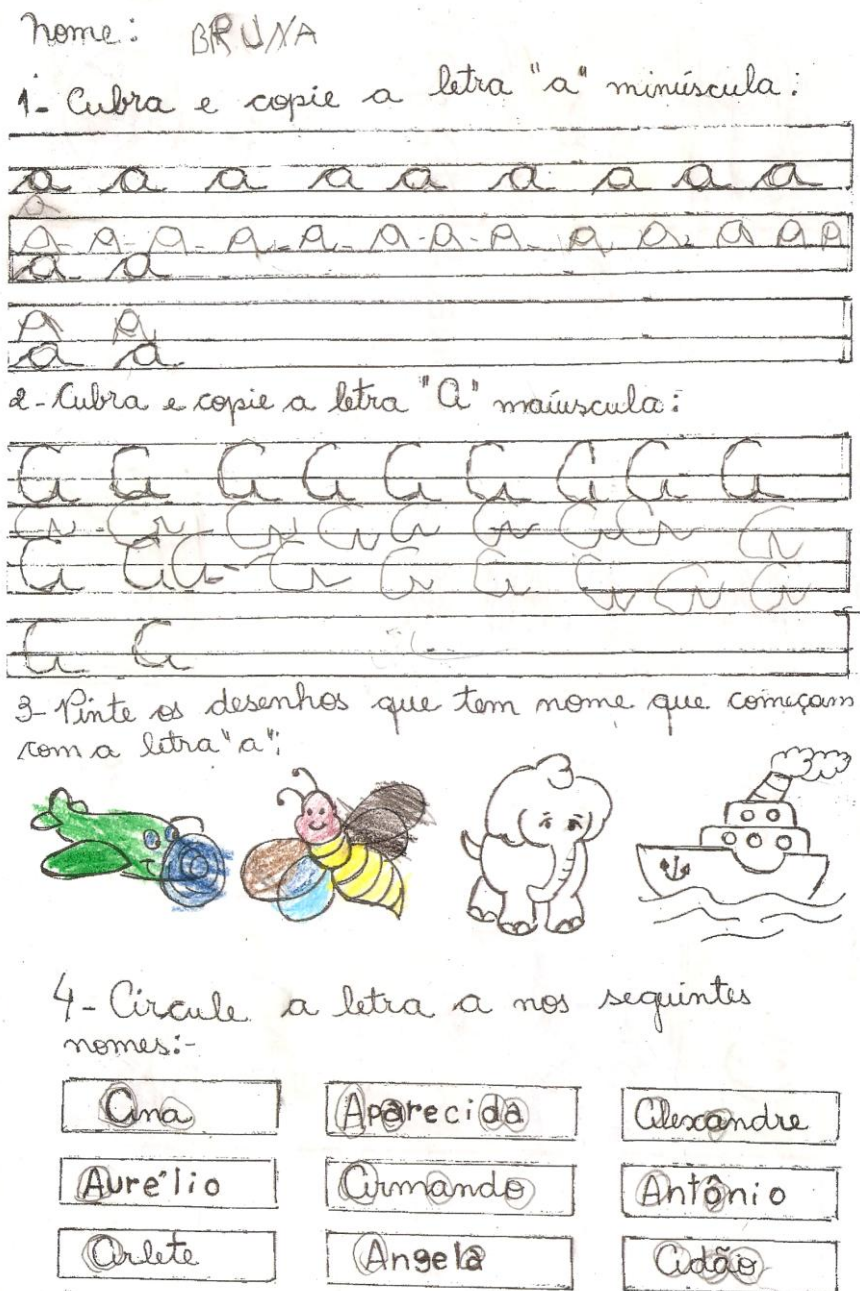 nome: BRUNA
1- Cubra e copie a letra "a" minúscula:
a a a a a a a a a
a
A A A A A A A A A A A A A
a a
A A
a a
2- Cubra e copie a letra "A" maiúscula:
A A A A A A A A A
A A A A A A A A A
A A A A A A A A A
A A
3- Pinte os desenhos que tem nome que começam
com a letra "a":
4- Circule a letra a nos seguintes
nomes:-
Ana Aparecida Alexandre
Aurélio Armando Antônio
Arlete Angela Adão